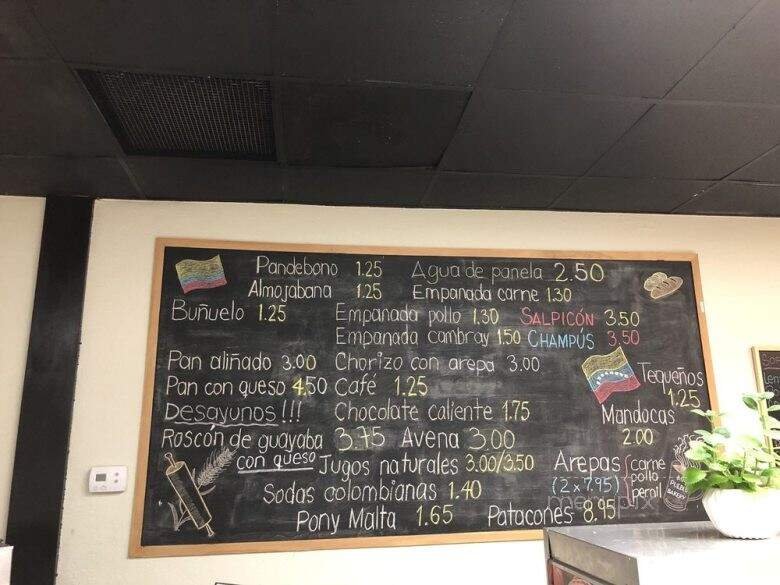 Pandebono 1.25 Agua de panela 2.50
Almojabana 1.25 Empanada carne 1.30
Buñuelo 1.25 Empanada pollo 1.30 SALPICÓN 3.50
Empanada cambray 1.50 CHAMPÚS 3.50
Pan aliñado 3.00 Chorizo con arepa 3.00
Pan con queso 4.50 Café 1.25
Tequeños
1.25
Desayunos!!! Chocolate caliente 1.75
Mandocas
2.00
Roscón de guayaba 3.75 Avena 3.00
con queso Jugos naturales 3.00/3.50
Arepas carne
(2x7.95) pollo
pernil
Sodas colombianas 1.40
Pony Malta 1.65 Patacones 8.95
BAKERY
menupix